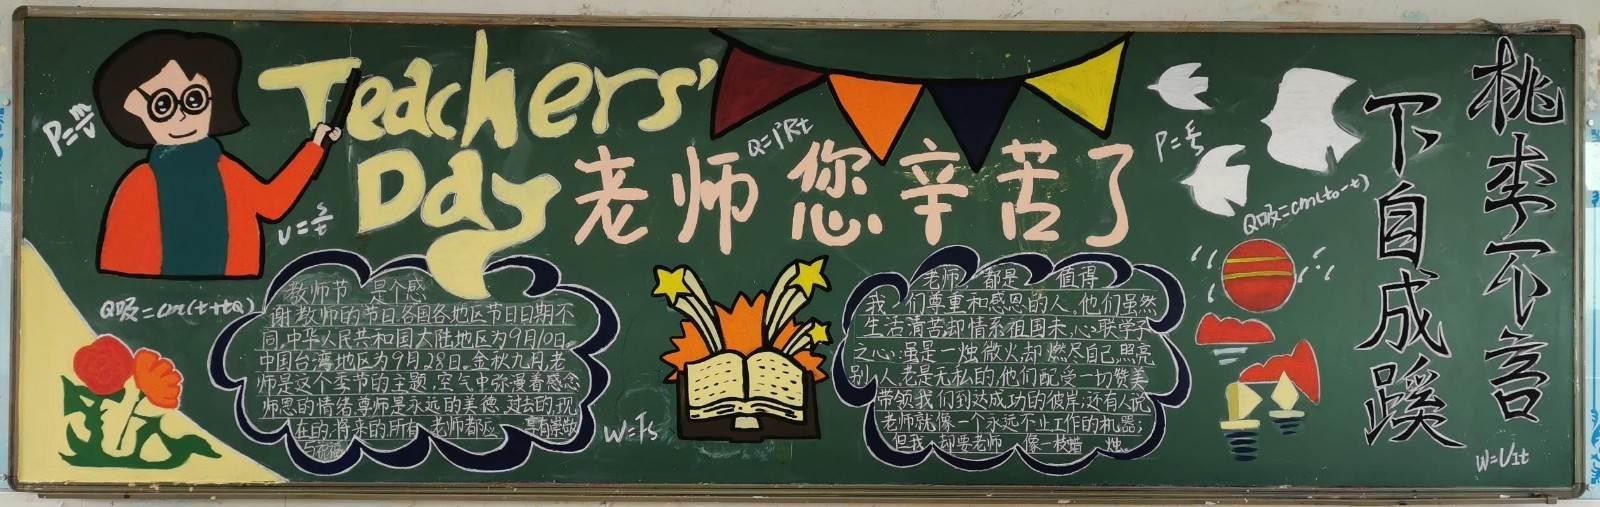 Teachers'
Day
老师您辛苦了
桃李不言
下自成蹊
P=m/v
v=s/t
Q吸=cm(t+tQ)
Q=I²Rt
W=Fs
Q吸=cm(t0-t)
W=UIt
教师节 是个感
谢教师的节日.各国各地区节日日期不
同,中华人民共和国大陆地区为9月10日。
中国台湾地区为9月28日。金秋九月,老
师是这个季节的主题,空气中弥漫着感念
师恩的情绪.尊师是永远的美德.过去的,现
在的,将来的,所有 老师都应 享有崇敬
与祝福
老师 都是 值得
我 们尊重和感恩的人。他们虽然
生活清苦却情系祖国未,心联学子
之心:虽是一烛微火,却 燃尽自己,照亮
别人.老是无私的,他们配受一切赞美
带领我们到达成功的彼岸;还有人说
老师就像一个永远不止工作的机器;
但我 却要老师 像一枝蜡 烛。